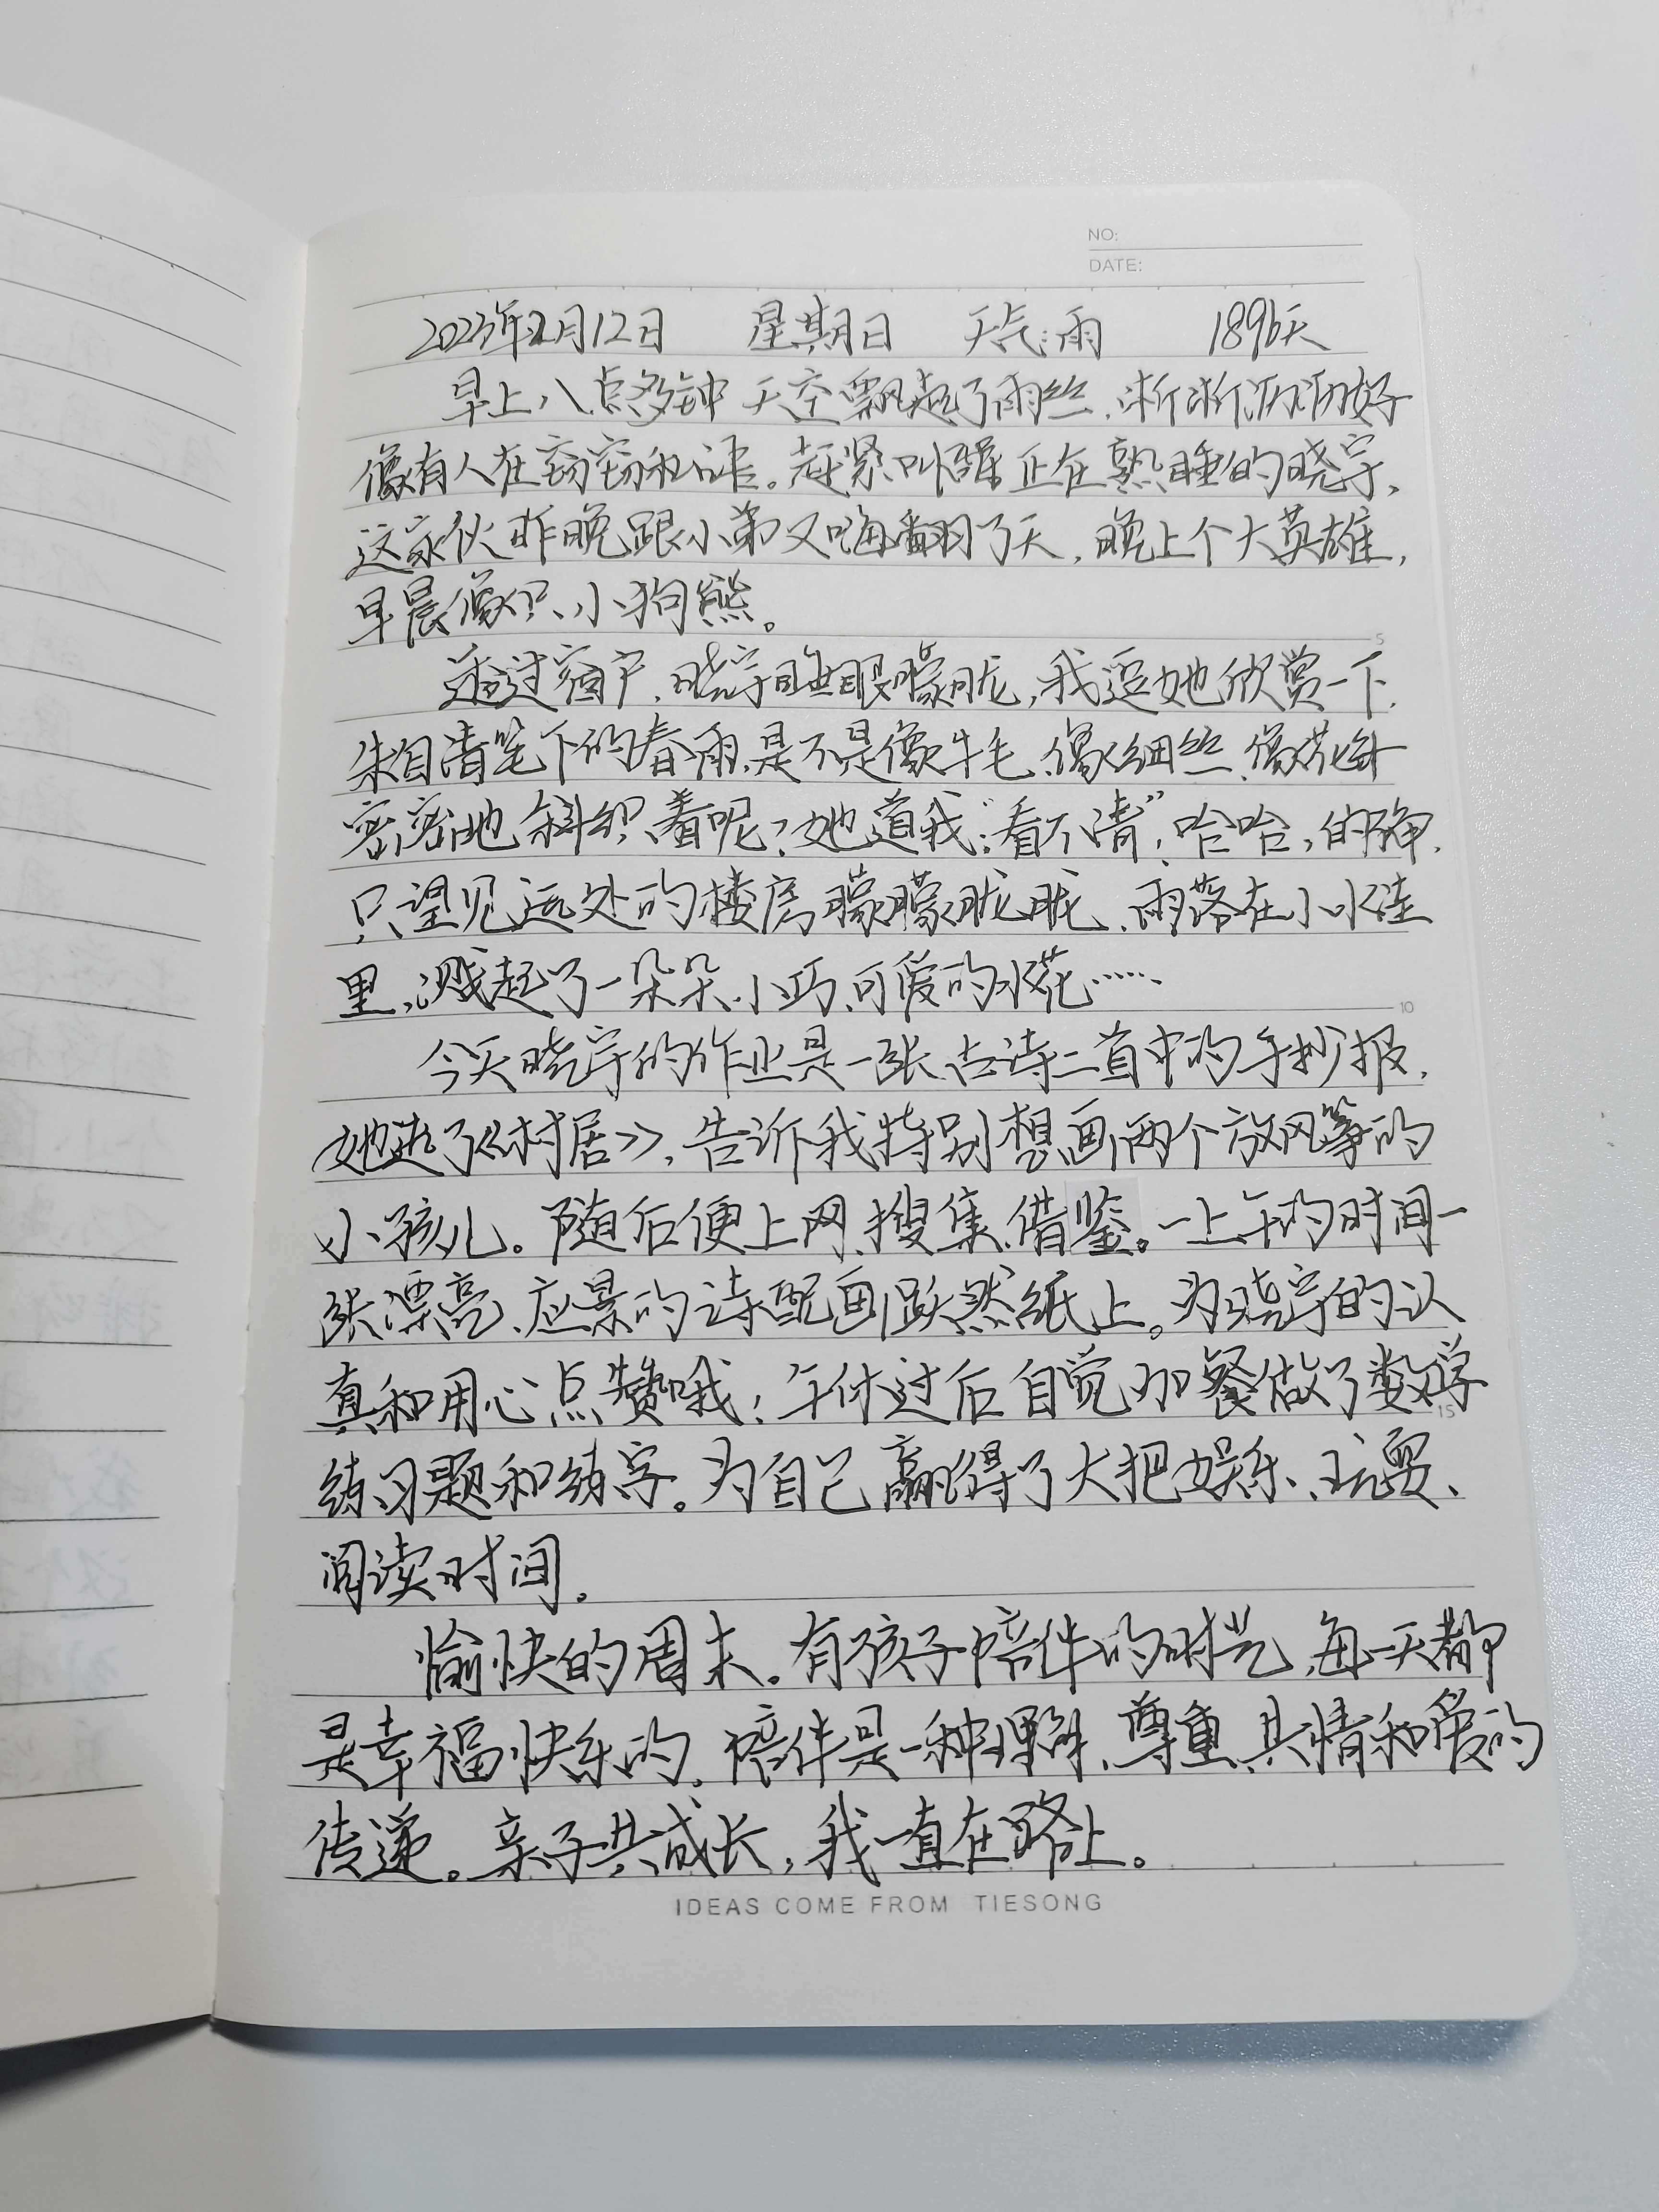 NO:
DATE:
2023年2月12日 星期日 天气:雨 1896天
早上八点多钟 天空飘起了雨丝，淅淅沥沥好
像有人在窃窃私语。赶紧叫醒正在熟睡的晓宇，
这家伙昨晚跟小弟又嗨翻了天，晚上个大英雄，
早晨像只小狗熊。
5
透过窗户，晓宇睡眼朦胧，我逗她欣赏一下，
朱自清笔下的春雨，是不是像牛毛、像细丝、像花针
密密地斜织着呢？她道我：“看不清”，哈哈，的确，
只望见远处的楼房朦朦胧胧、雨落在小水洼
里，溅起了一朵朵小巧、可爱的水花……
10
今天晓宇的作业是一张古诗二首中的手抄报，
她选了《村居》，告诉我特别想画两个放风筝的
小孩儿。随后便上网、搜集、借鉴。一上午的时间一
张漂亮、应景的诗配画跃然纸上。为晓宇的认
真和用心点赞哦！午休过后自觉加餐做了数学
15
练习题和练字。为自己赢得了大把娱乐、玩耍、
阅读时间。
愉快的周末。有孩子陪伴的时光，每一天都
是幸福快乐的。陪伴是一种理解、尊重、共情和爱的
传递。亲子共成长，我一直在路上。
IDEAS COME FROM TIESONG